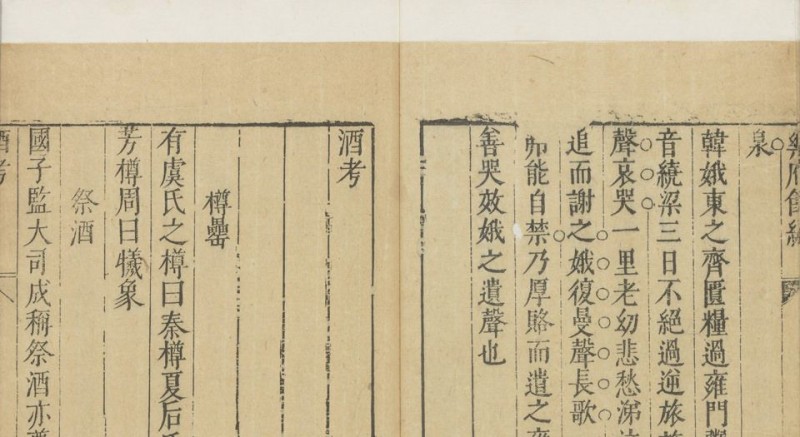 泉
韓娥東之齊匱糧過雍門
音繞梁三日不絕過逆旅
聲哀哭一里老幼悲愁涕
追而謝之娥復曼聲長歌
能自禁乃厚賂而遣之
善哭效娥之遺聲也
酒考
樽罍
有虞氏之樽曰秦樽夏后
芳樽周曰犧象
祭酒
國子監大司成稱祭酒亦
酒考